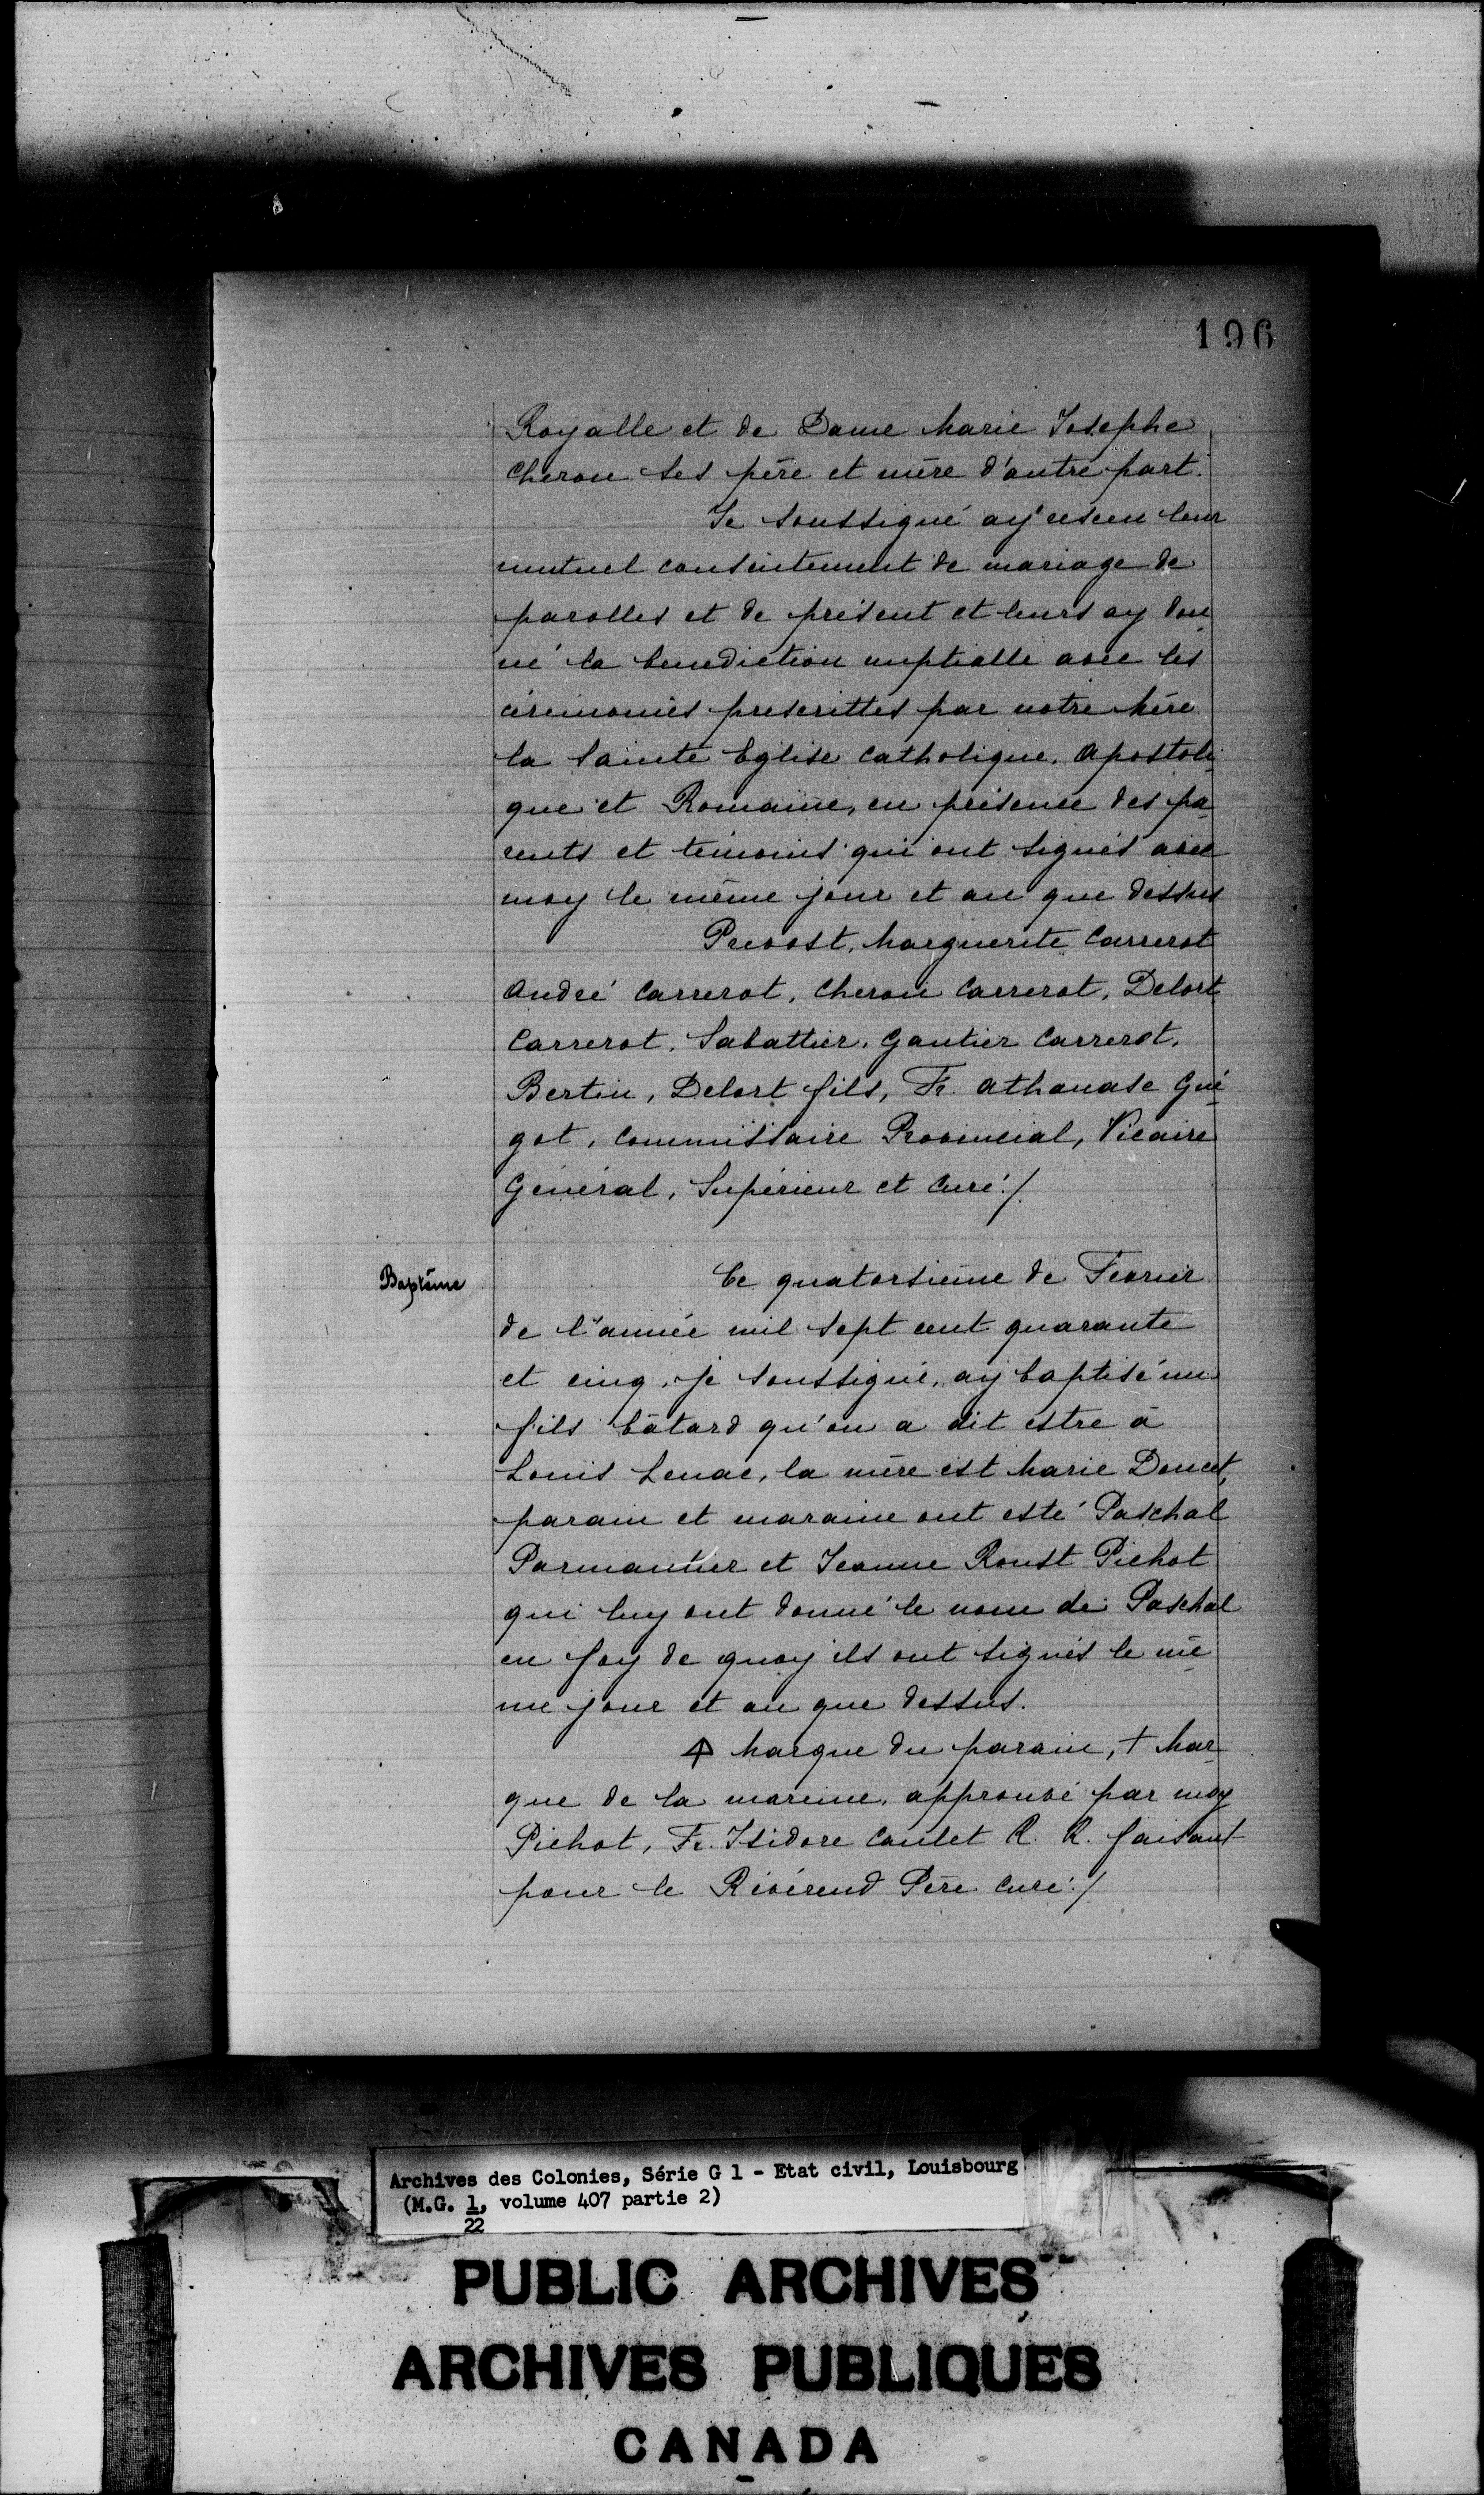 196
Royalle et de Dame Marie Josephe
Cheron ses père et mère d'autre part.
Je soussigné ay réseeu leur
mutuel consentement de mariage de
parolles et de présent et leurs ay don
né la benediction nuptialle avec les
cérémonies prescrittes par notre Mère
la Sainte Eglise Catholique, Apostoli-
que et Romaine, en présence des pa-
rents et témoins qui ont signés avec
moy le même jour et an que dessus
Prevost, Marguerite Carrerot
André Carrerot, Cheron Carrerot, Delort
Carrerot, Sabattier, Gautier Carrerot,
Bertin, Delort fils, Fr. Athanase Gué-
got, Commissaire Provincial, Vicaire
Général, Supérieur et Curé./.
Baptême
Ce quatorsième de Fevrier
de l'année mil sept cent quarante
et cinq, je soussigné, ay baptisé un
fils bâtard qu'on a dit estre à
Louis Lenac, la mère est Marie Doucet,
parain et maraine ont esté Paschal
Parmantier et Jeanne Roust Pichot
qui luy ont donné le nom de Paschal
en foy de quoy ils ont signés le mê-
me jour et an que dessus.
Marque du parain, + Mar-
que de la mareine, approuvé par moy
Pichot, Fr. Isidore Caulet R. R. faisant
pour le Révérend Père Curé./.
Archives des Colonies, Série G 1 - Etat civil, Louisbourg
(M.G. 1, volume 407 partie 2)
22
PUBLIC ARCHIVES
ARCHIVES PUBLIQUES
CANADA